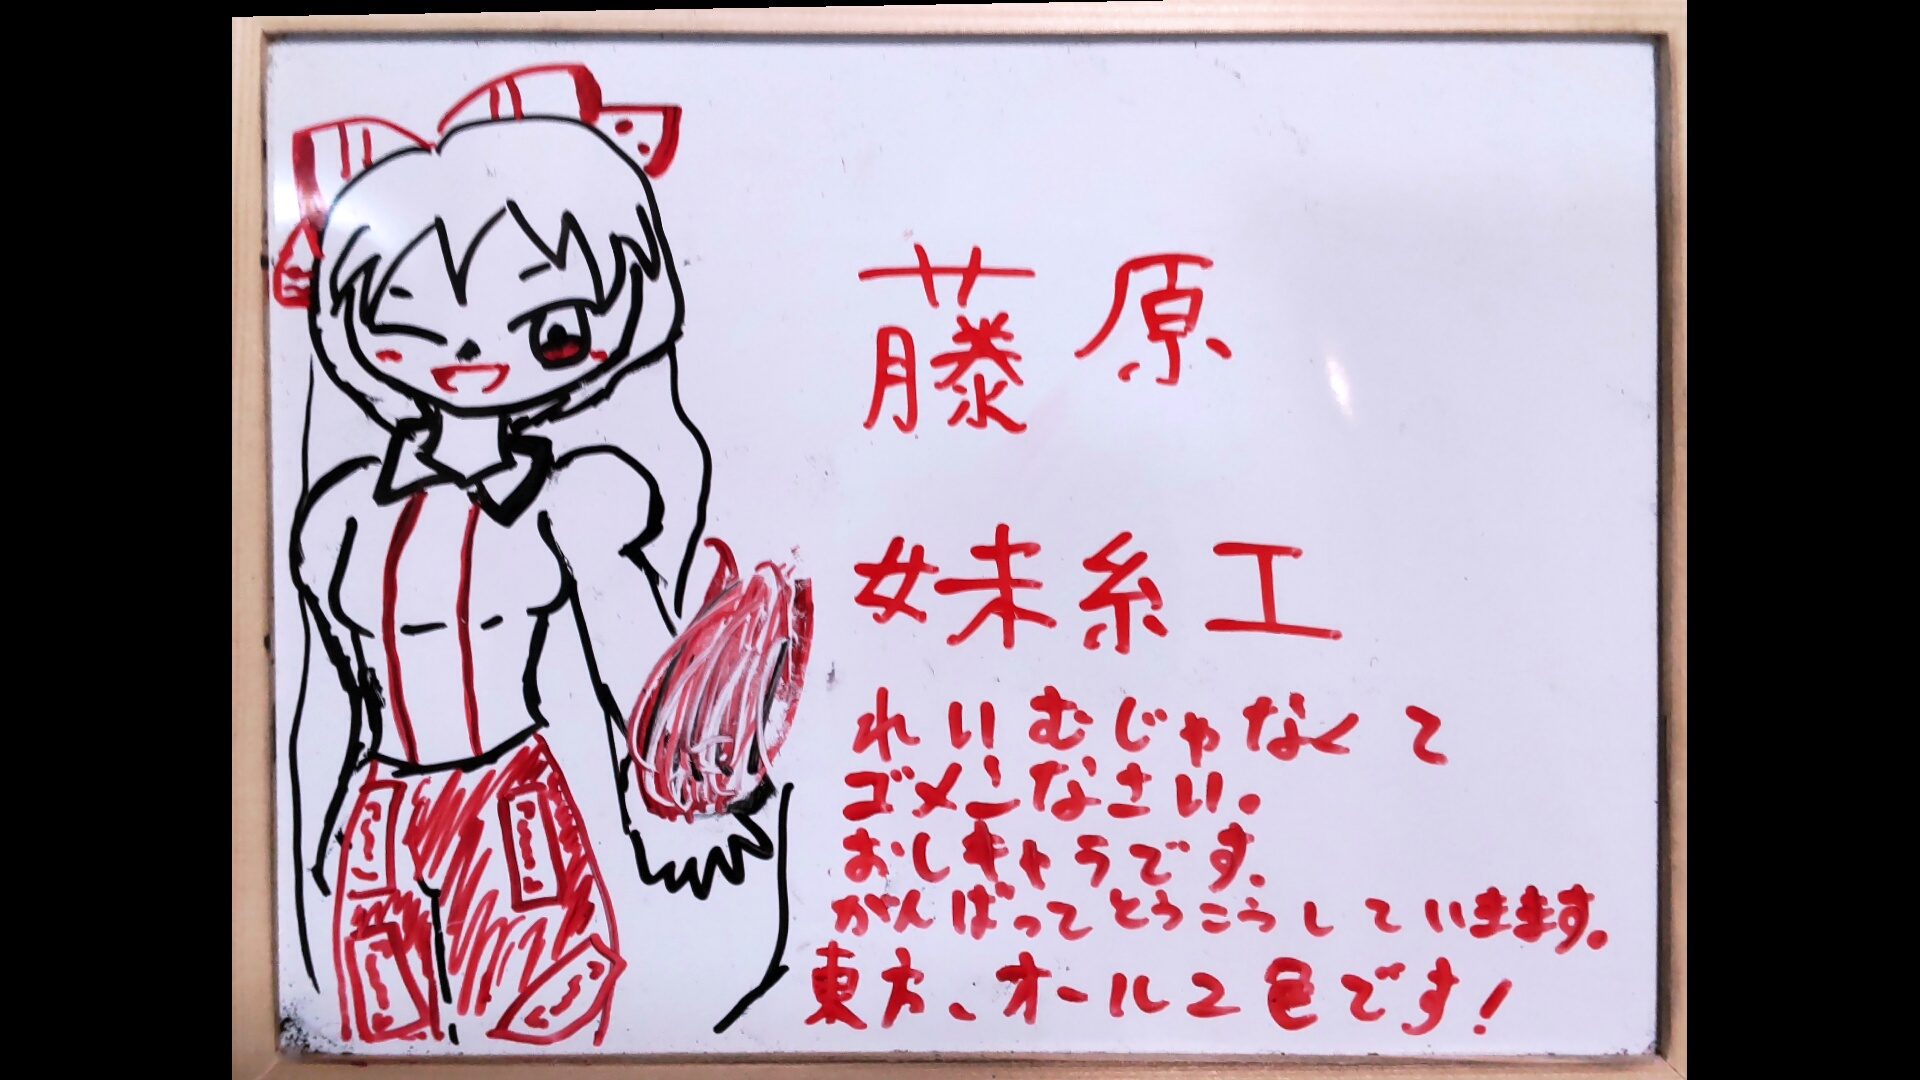 藤原
妹紅
れいむじゃなくて
ゴメンなさい。
おしキャラです。
がんばってとうこうしていまます。
東方、オール2色です!